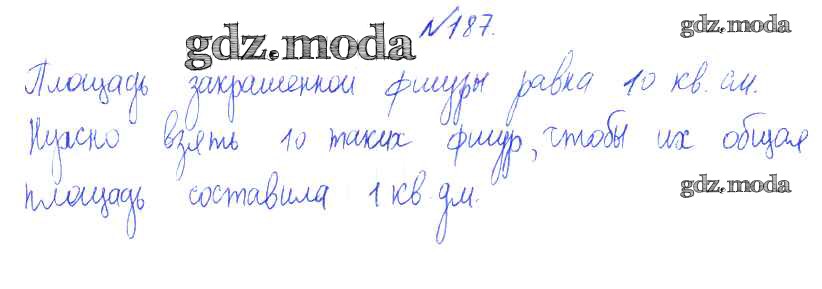 №187.
gdz.moda
gdz.moda
Площадь закрашенной фигуры равна 10 кв. см.
Нужно взять 10 таких фигур, чтобы их общая
площадь составила 1 кв. дм.
gdz.moda